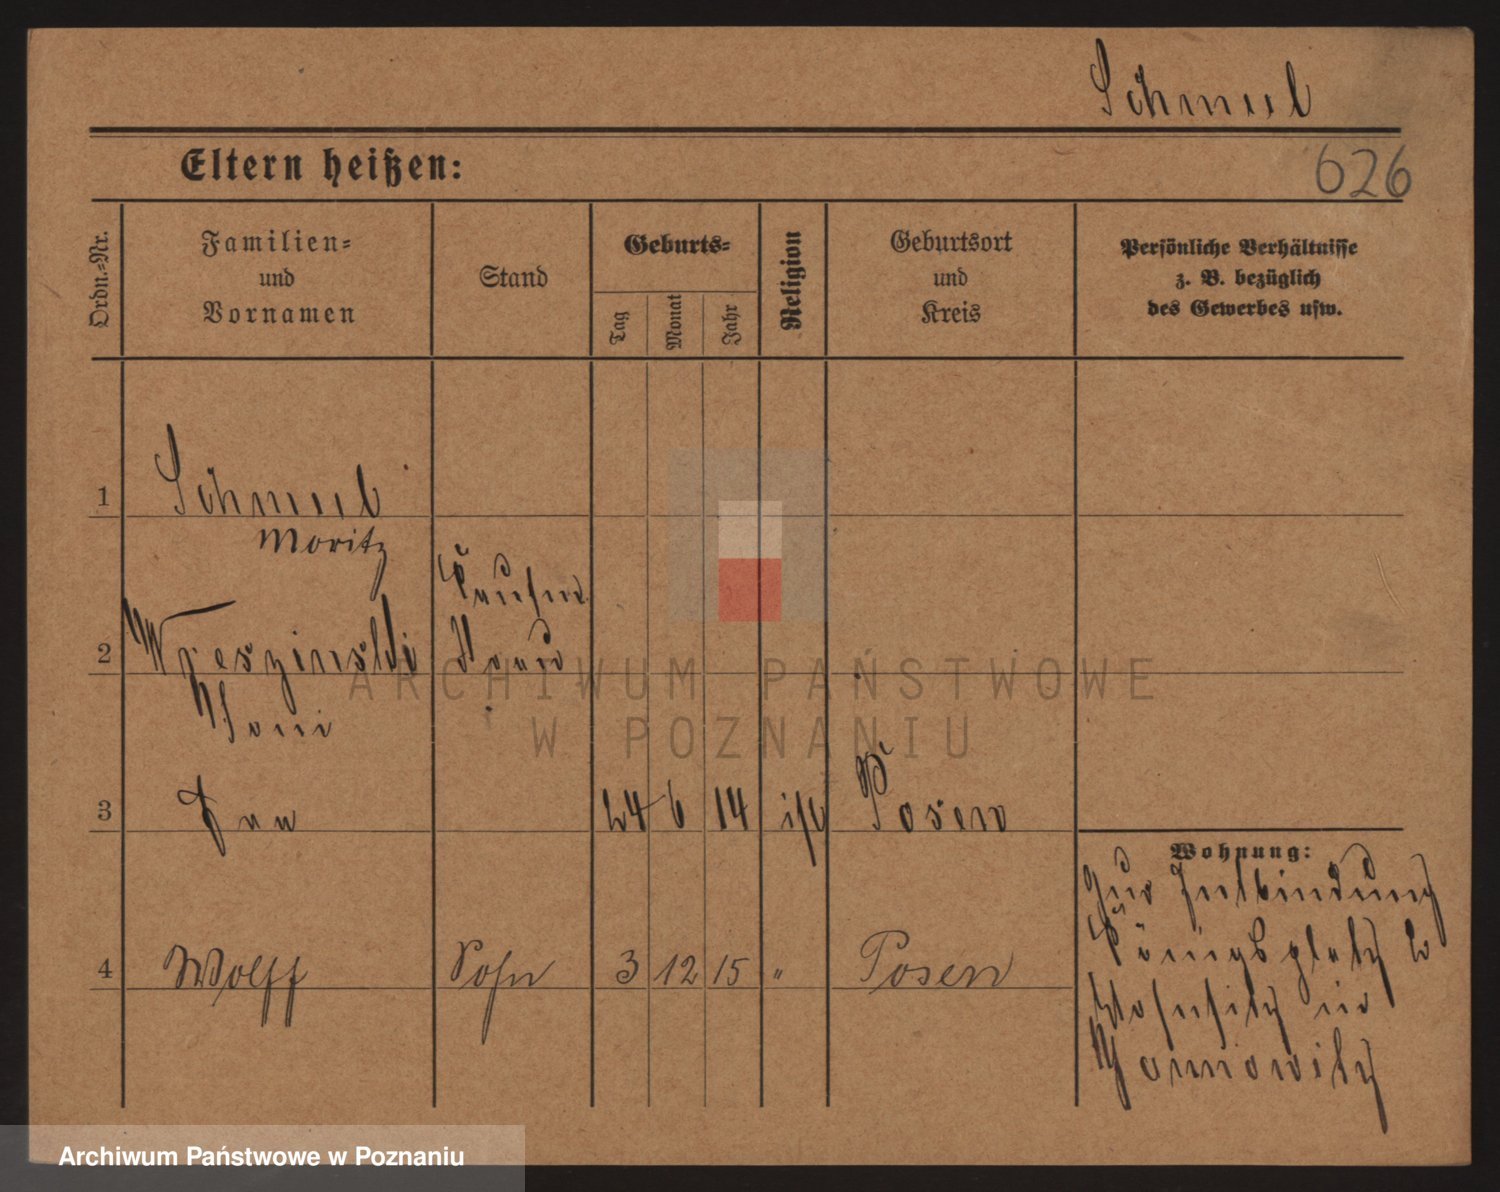 Schmul
Eltern heißen:
626
Ordn.=Nr.
Familien=
und
Vornamen
Stand
Geburts=
Tag
Monat
Jahr
Religion
Geburtsort
und
Kreis
Persönliche Verhältnisse
z. B. bezüglich
des Gewerbes usw.
1
Schmul
Moritz
2
Wreszinski
3
24 6 14
Posen
Wohnung:
Zur Entbindung
Königsplatz
4
Wolff
Sohn
3 12 15 "
Posen
Wohnsitz in
Janowitz
ARCHIWUM PAŃSTWOWE
W POZNANIU
Archiwum Państwowe w Poznaniu